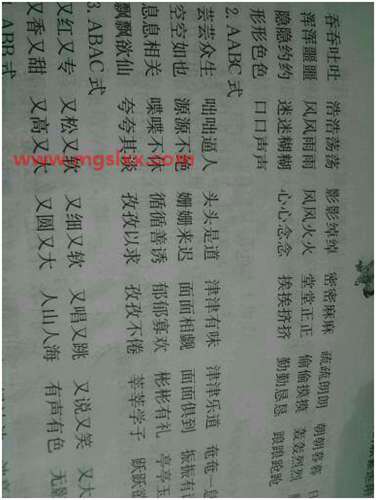 吞吞吐吐 浩浩荡荡 影影绰绰 密密麻麻 疏疏朗朗 朝朝暮暮
浑浑噩噩 风风雨雨 风风火火 堂堂正正 偷偷摸摸 轰轰烈烈
隐隐约约 迷迷糊糊 心心念念 挨挨挤挤 勤勤恳恳 踉踉跄跄
形形色色 口口声声
2. AABC 式
芸芸众生 咄咄逼人 头头是道 津津有味 津津乐道 奄奄一
空空如也 源源不绝 姗姗来迟 面面相觑 面面俱到 振振有
息息相关 喋喋不休 循循善诱 郁郁寡欢 彬彬有礼 亭亭玉
飘飘欲仙 夸夸其谈 孜孜以求 孜孜不倦 莘莘学子 跃跃欲
3. ABAC 式
又红又专 又松又软 又细又软 又唱又跳 又说又笑 又大
又香又甜 又高又大 又圆又大 人山人海 有声有色 无影
ABB 式
www.mgslyx.com